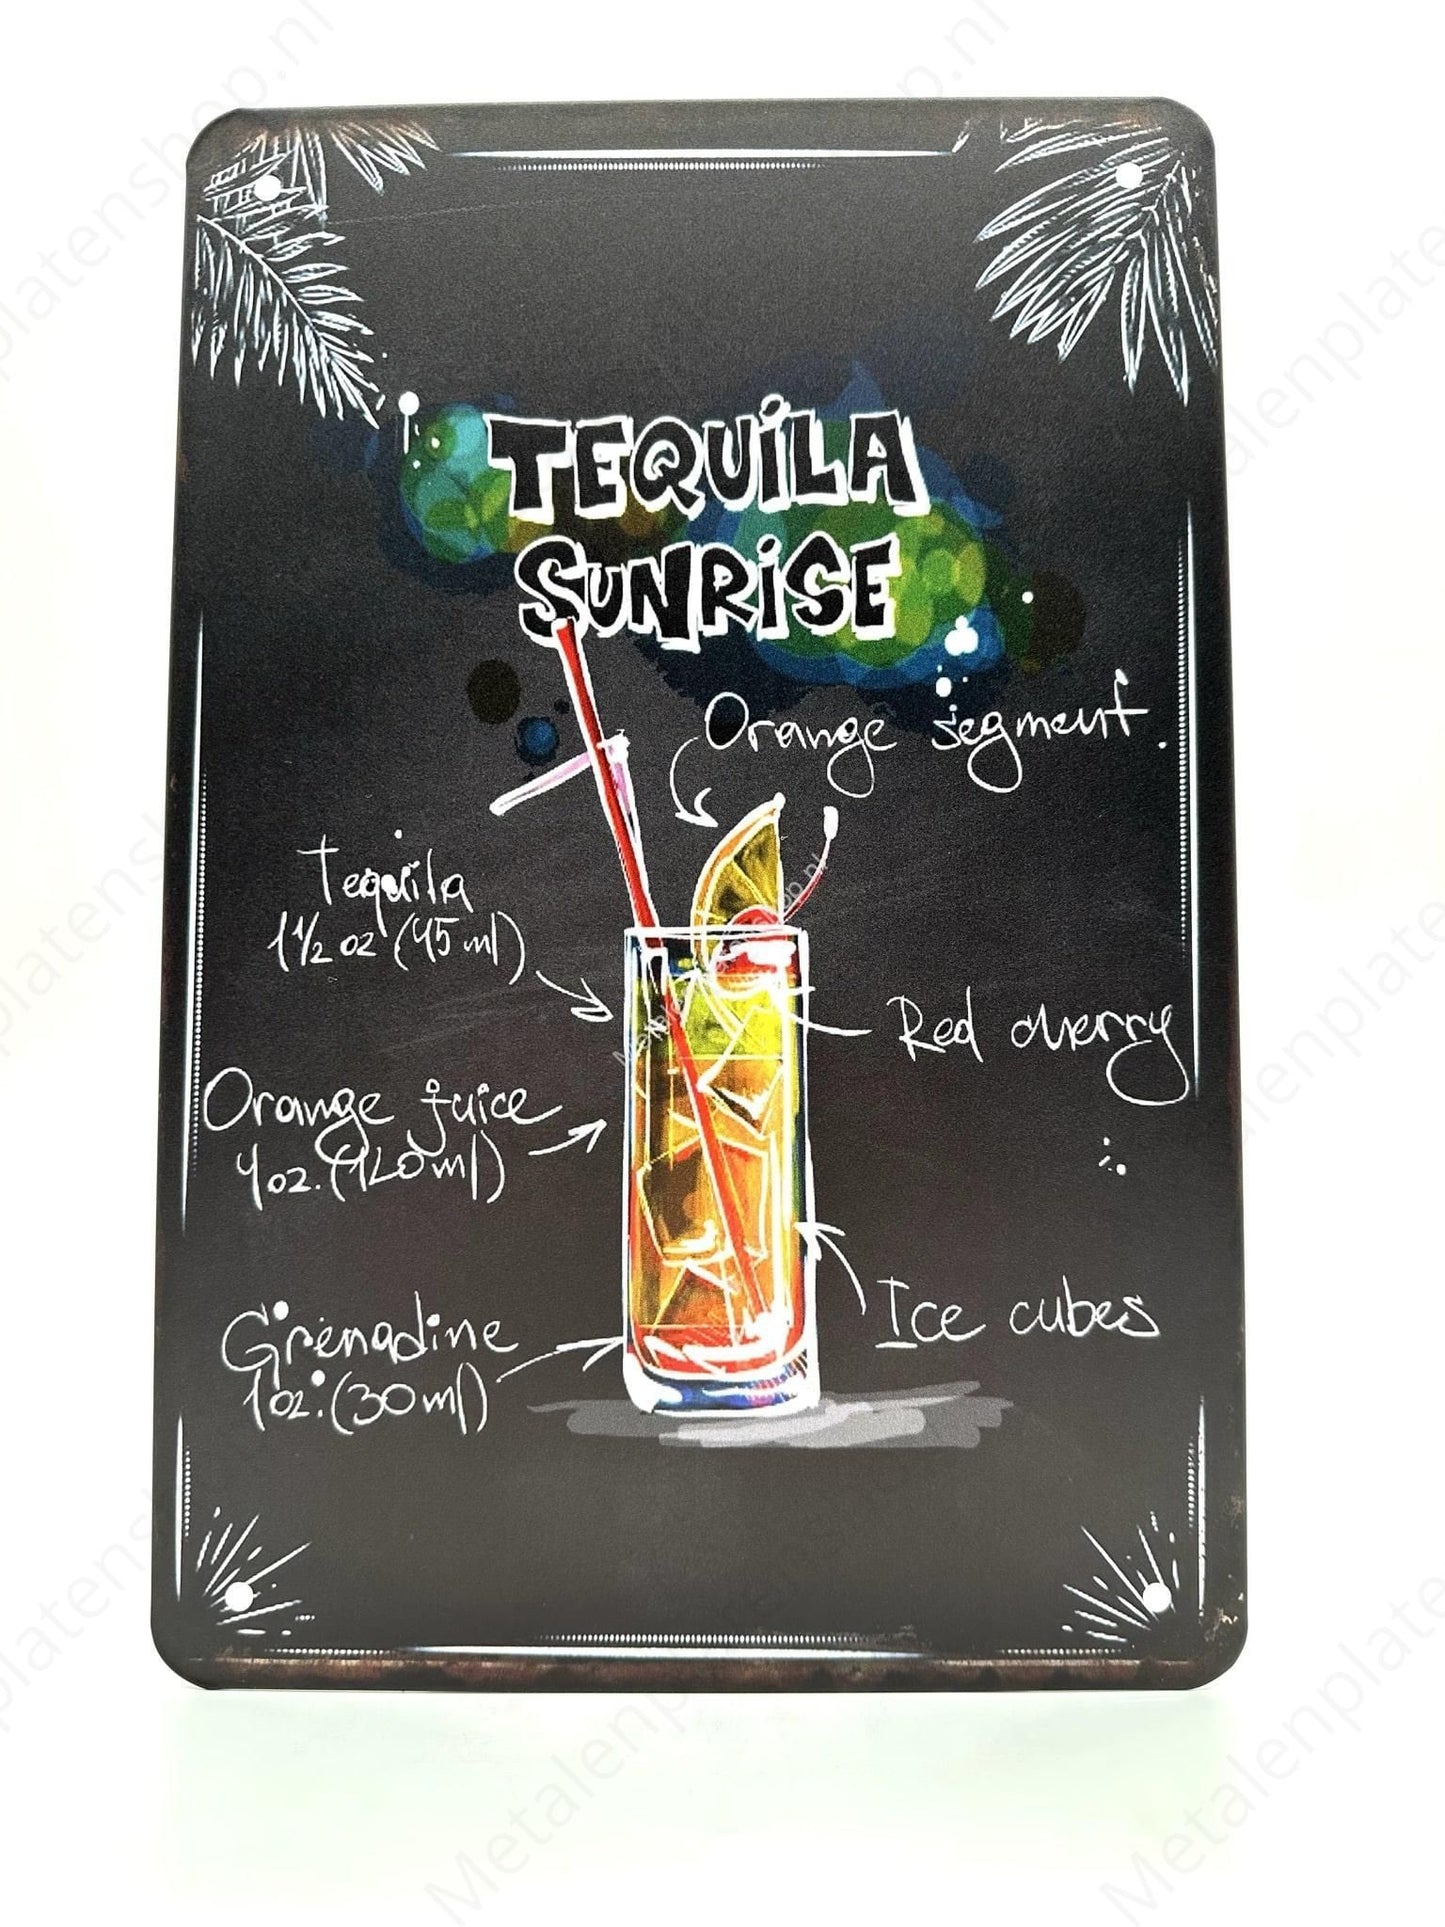 TEQUiLA
SUNRiSE
Orange segment.
Tequila
1 1/2 oz (45 ml)
Red cherry
Orange juice
4 oz. (120 ml)
Ice cubes
Grenadine
1 oz. (30 ml)
Metalenplatenshop.nl